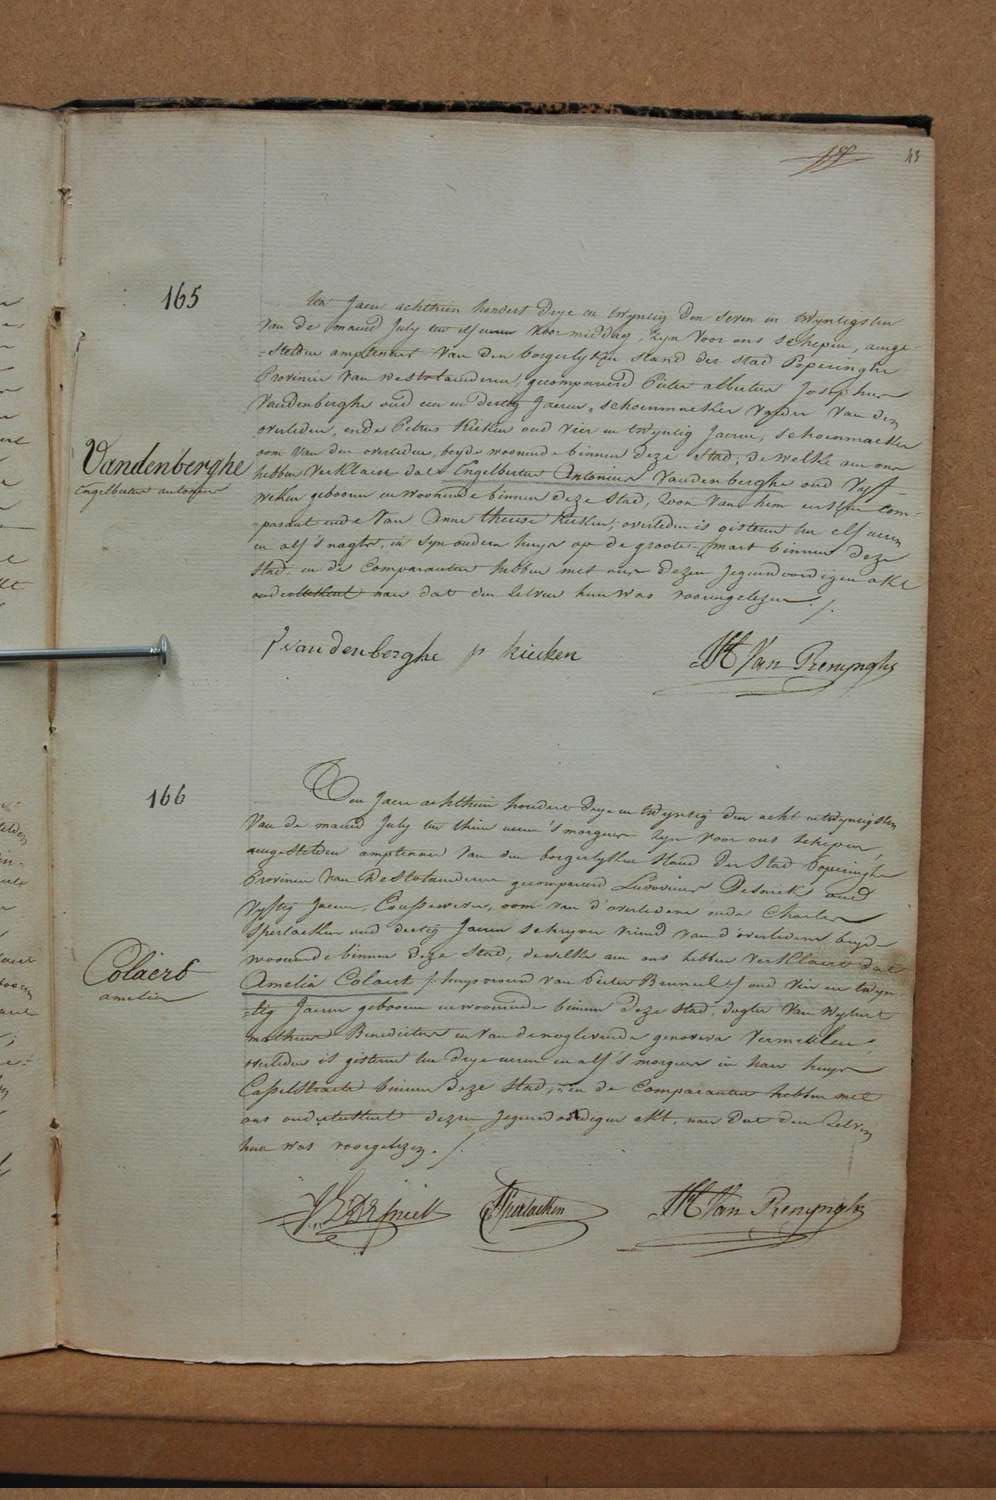 43
165
Ten Jaere achthien hondert drye en twyntig den seven en twyntigsten
van de maend July ten elf uren voor middag, zyn voor ons schepen, ange-
-stelden amptenaer van den borgerlyken stand der stad Poperinghe
Provincie van Westvlaenderen, gecompareerd Pieter albertus Josephus
Vandenberghe oud een en dertig Jaeren, schoenmaeker vader van den
overleden, ende Petrus Kieken oud vier en twyntig Jaeren, schoenmaeker
oom van den overleden, beyde woonende binnen deze stad, de welke aen ons
hebben verklaert dat Engelbertus Antonius Vandenberghe oud vyf
Vandenberghe
Engelbertus antonius
weken gebooren en woonende binnen deze stad, zoon van hem eersten com-
-parant ende van Anne therese Kieken, overleden is gisteren ten elf uren
en alf 's nagts, in syn ouders huys op de groote-mart binnen deze
stad en de Comparanten hebben met ons dezen jegenwoordigen akt
onderteekent naer dat den zelven hun was voorengelezen ./.
p vandenberghe p kieken
H Van Renynghe
166
Den Jaere achthien hondert drye en twyntig den acht en twyntigsten
van de maend July ten thien uren 's morgens zyn voor ons schepen,
aengestelden amptenaer van den borgerlyken stand der stad Poperinghe
Provincie van Westvlaenderen gecompareerd Ludovicus Desmiek oud
vyftig Jaeren, Coussewever, oom van d'overledene ende Charles
Sperlaeken oud dertig Jaeren schryver vriend van d'overledene beyde
woonende binnen deze stad, dewelke aen ons hebben verklaert dat
Colaert
amelia
Amelia Colaert /: huysvrouw van Pieter Bernuel :/ oud vier en twyn
-tig Jaeren gebooren en woonende binnen deze stad, dogter van Wybert
matheus Benedictus en van de noglevende genoveva Vermeulen,
overleden is gisteren ten drye uren en alf 's morgens in haer huys
Casselstraete binnen deze stad, en de Comparanten hebben met
ons onderteekent dezen Jegenwoordigen akt, naer dat den zelven
hun was voorgelezen ./.
Sperlaeken
H Van Renynghe